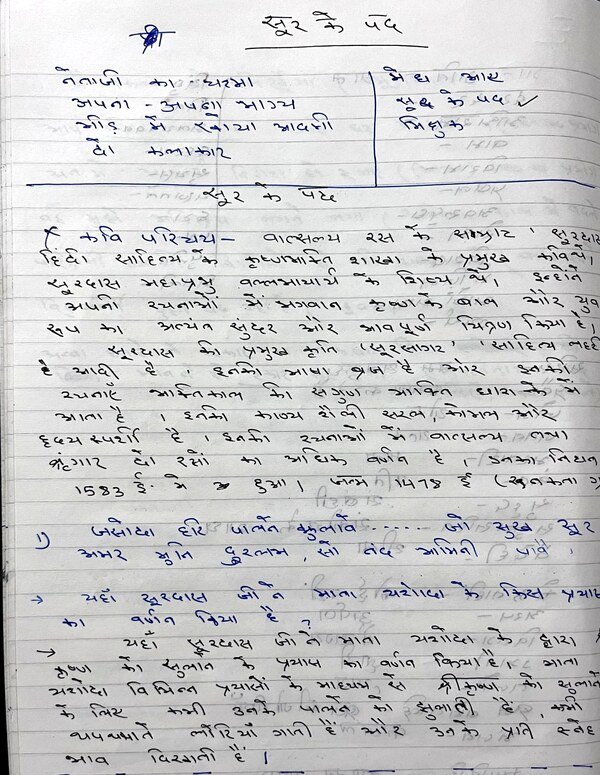 श्री
सूर के पद
नेताजी का चश्मा
अपना - अपना भाग्य
भीड़ में खोया आदमी
दो कलाकार
मेघ आए
सूर के पद ✓
भिक्षुक
सूर के पद
कवि परिचय - वात्सल्य रस के सम्राट सूरदास
हिंदी साहित्य के कृष्णभक्ति शाखा के प्रमुख कवि थे,
सूरदास महाप्रभु वल्लभाचार्य के शिष्य थे, इन्होंने
अपनी रचनाओं में भगवान कृष्ण के बाल और युवा
रूप का अत्यंत सुंदर और भावपूर्ण चित्रण किया है,
सूरदास की प्रमुख कृति 'सूरसागर' 'साहित्य लहरी'
है आदि है । इनकी भाषा ब्रज है और इनकी
रचनाएँ भक्तिकाल की सगुण भक्ति धारा के में
आता है । इनकी काव्य शैली सरल, कोमल और
हृदय स्पर्शी है । इनकी रचनाओं में वात्सल्य तथा
श्रृंगार दो रसों का अधिक वर्णन है, इनका निधन
1583 ई. में हुआ, जन्म 1478 ई (रुनकता
1) जसोदा हरि पालनैं झुलावै ...... जो सुख सूर
अमर मुनि दुरलभ, सो नंद भामिनी पावै ।
→ यहाँ सूरदास जी ने माता यशोदा के किस प्रयास
का वर्णन किया है ?
→ यहाँ सूरदास जी ने माता यशोदा के द्वारा
कृष्ण को सुलाने के प्रयास का वर्णन किया है, माता
यशोदा विभिन्न प्रयासों के माध्यम से श्रीकृष्ण को सुलाने
के लिए कभी उनके पालने को झुलाती है, कभी
थपथपाते लोरियाँ गाती हैं और उनके प्रति स्नेह
भाव दिखाती हैं ।